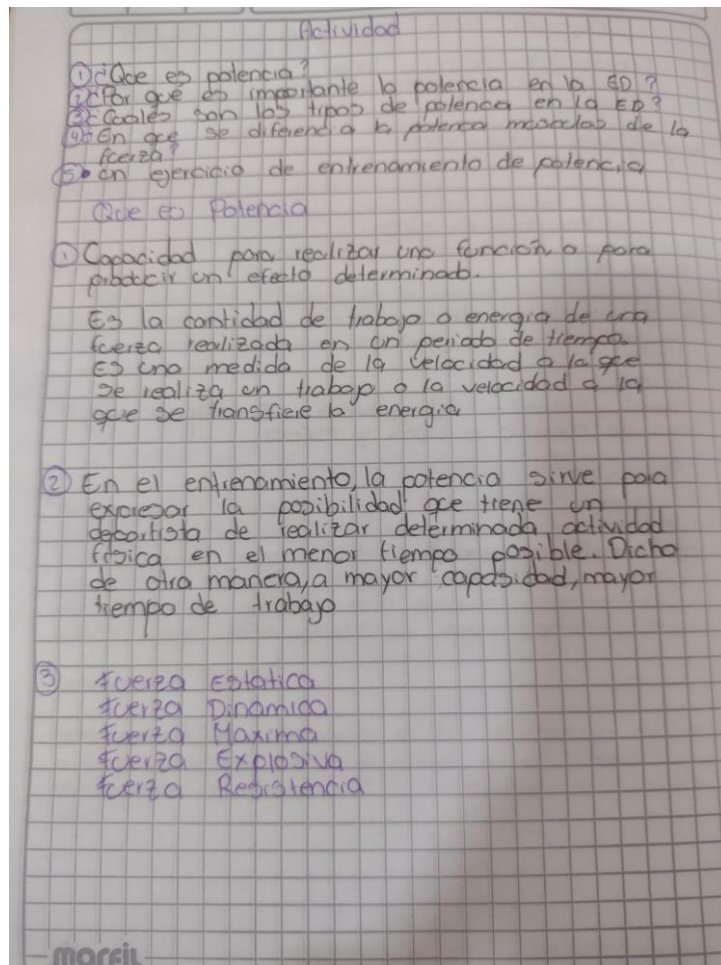 Actividad
① ¿Que es potencia?
② ¿Por que es importante la potencia en la ED?
③ ¿Cuales son los tipos de potencia en la ED?
④ ¿En que se diferencia la potencia de la
fuerza?
⑤ • un ejercicio de entrenamiento de potencia
Que es Potencia
① Capacidad para realizar una función, o para
producir un efecto determinado.
Es la cantidad de trabajo o energia de una
fuerza realizada en un periodo de tiempo.
Es una medida de la velocidad a la que
se realiza un trabajo o la velocidad a la
que se transfiere la energia
② En el entrenamiento, la potencia sirve para
expresar la posibilidad que tiene un
deportista de realizar determinada actividad
fisica en el menor tiempo posible. Dicho
de otra manera, a mayor capasidad, mayor
tiempo de trabajo
③ fuerza Estatica
fuerza Dinamica
fuerza Maxima
fuerza Explosiva
fuerza Resistencia
marfil